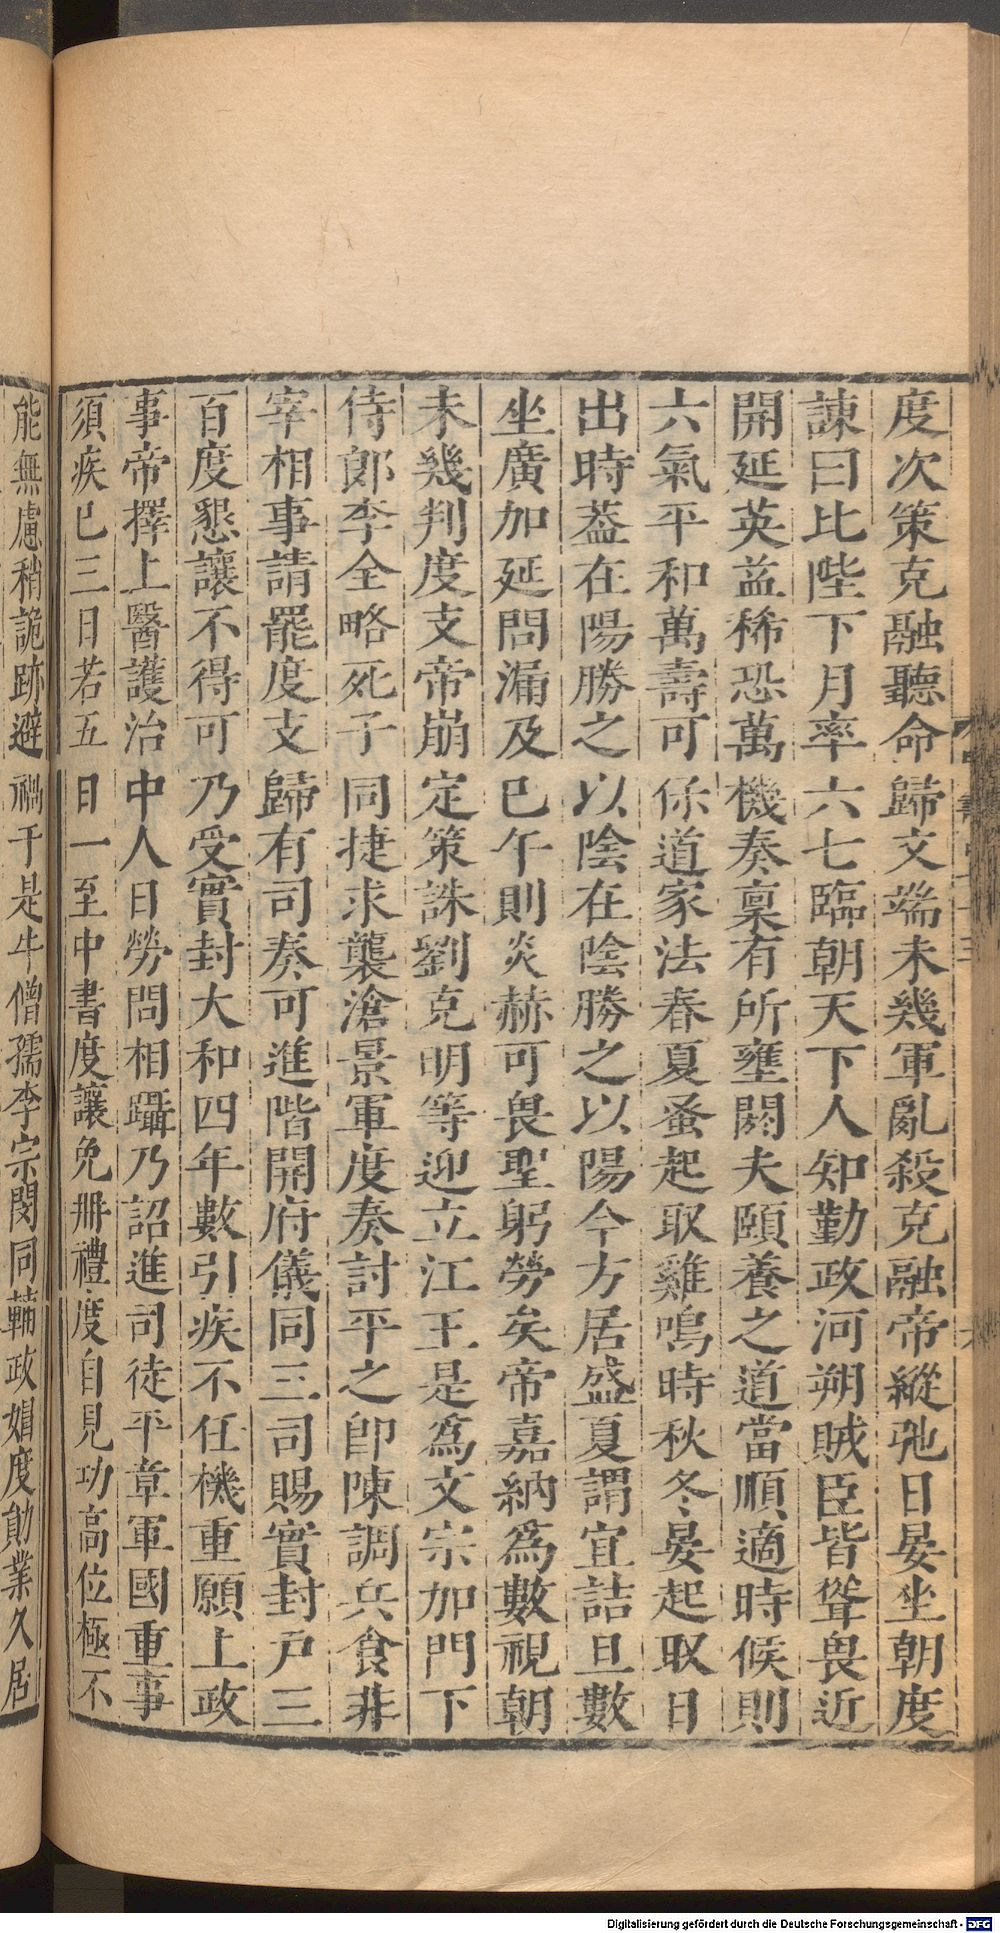 度次策克融聽命歸文端未幾軍亂殺克融帝縱弛日晏坐朝度
諫曰比陛下月率六七臨朝天下人知勤政河朔賊臣皆聳畏近
開延英益稀恐萬機奏稟有所壅閼夫頤養之道當順適時候則
六氣平和萬壽可保道家法春夏蚤起取雞鳴時秋冬晏起取日
出時葢在陽勝之以陰在陰勝之以陽今方居盛夏謂宜詰旦數
坐廣加延問漏及巳午則炎赫可畏聖躬勞矣帝嘉納爲數視朝
未幾判度支帝崩定策誅劉克明等迎立江王是爲文宗加門下
侍郎李全略死子同捷求襲滄景軍度奏討平之卽陳調兵食非
宰相事請罷度支歸有司奏可進階開府儀同三司賜實封戶三
百度懇讓不得可乃受實封大和四年數引疾不任機重願上政
事帝擇上醫護治中人日勞問相躡乃詔進司徒平章軍國重事
須疾已三日若五日一至中書度讓免冊禮度自見功高位極不
能無慮稍詭跡避禍于是牛僧孺李宗閔同輔政媢度勛業久居
Digitalisierung gefördert durch die Deutsche Forschungsgemeinschaft - DFG